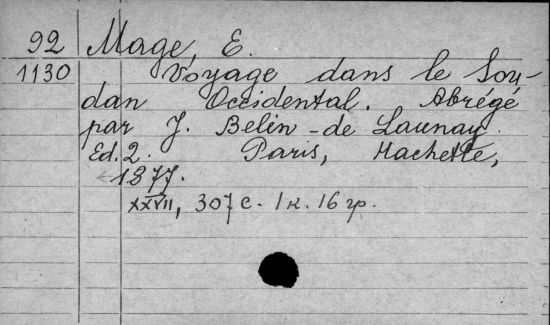 92 Mage, E.
1130 Voyage dans le Sou-
dan Occidental. Abrégé
par J. Belin-de Launay.
Ed. 2. Paris, Hachette,
1877.
XXVII, 307 с. 1 к. 16 гр.